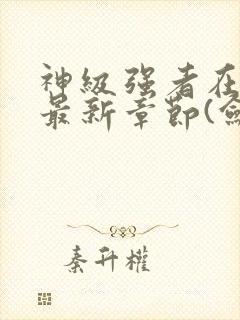 神級强者在
最新章節(
秦升權